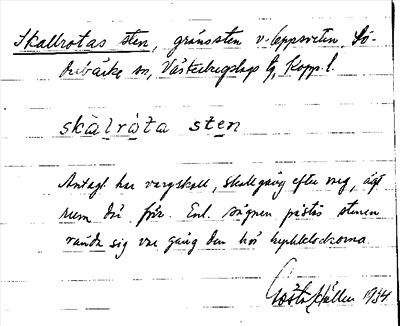 Skallrotas sten, gränssten v. Leppsveten, Sö-
derbärke sn, Västerbergslags tg, Kopp. l.
skàlràta sten
Antagl. har vargskall, skallgång efter varg, ägt
rum där förr. Enl. sägnen påstås stenen
vända sig var gång den hör kyrkklockorna.
Gösta Hällen 1934